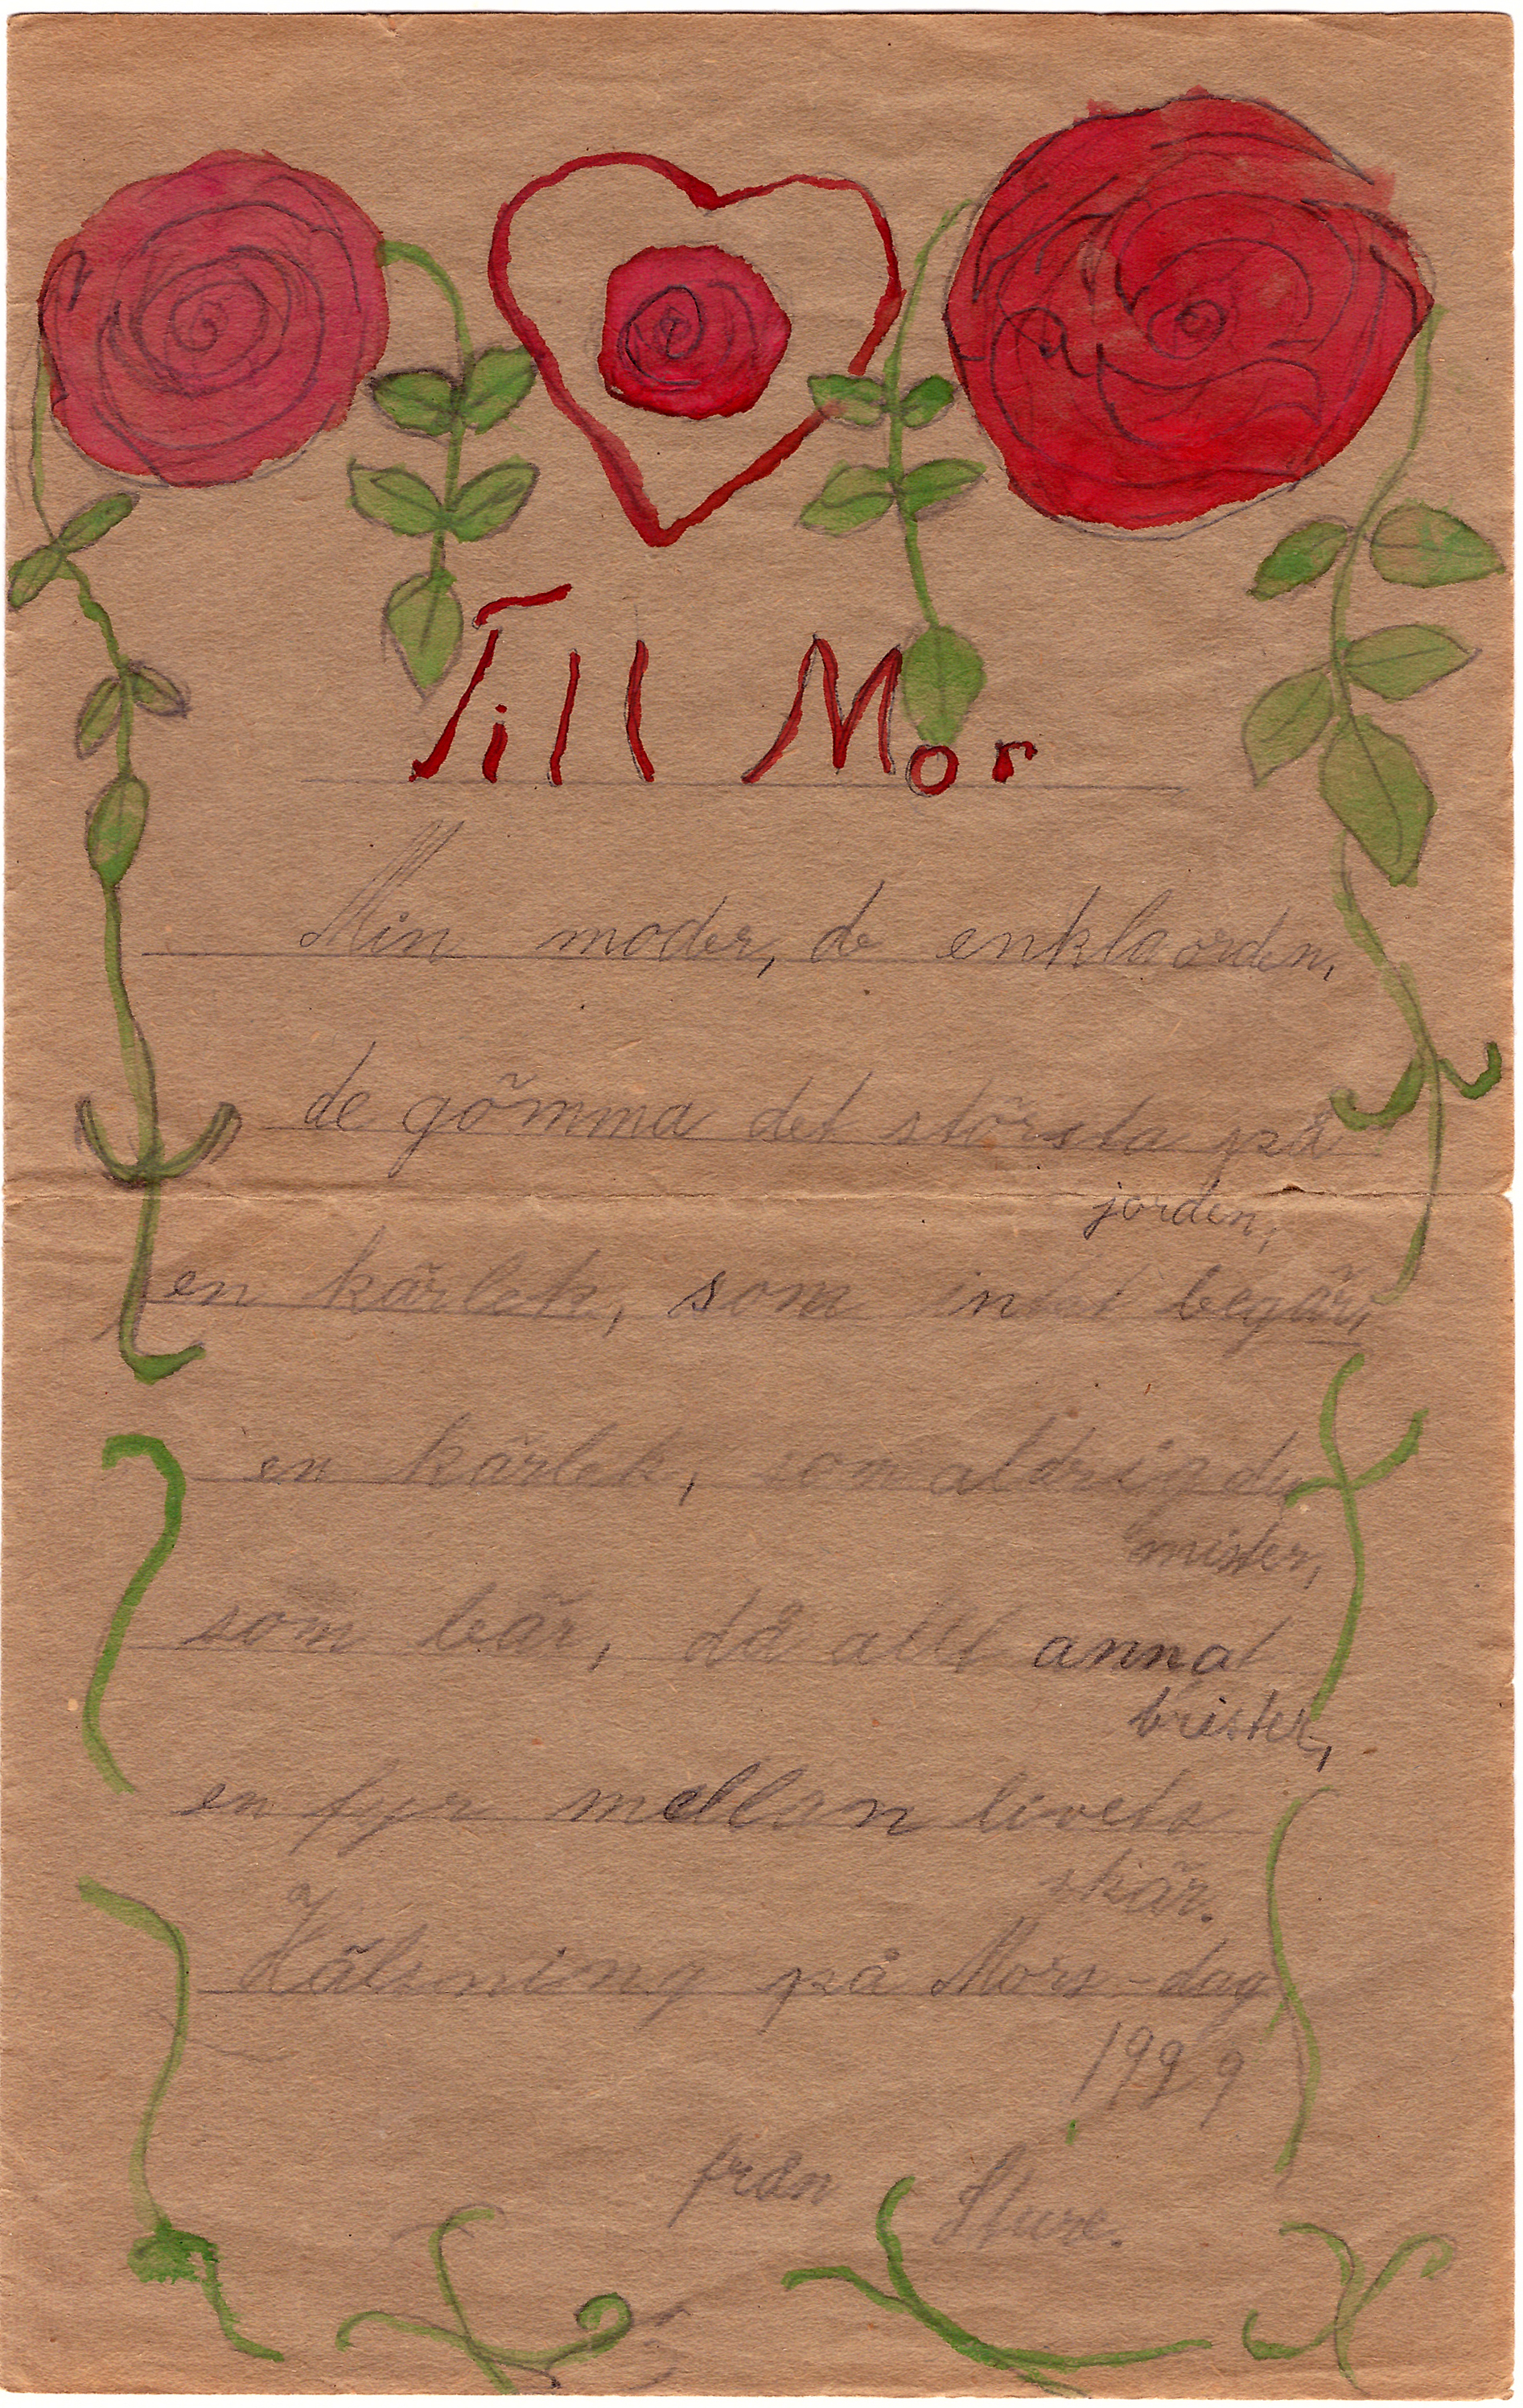 Till Mor
Min moder, de enkla orden,
de gömma det största på
jorden,
en kärlek, som intet begär,
en kärlek, som aldrig du
mister,
som bär, då allt annat
brister,
en fyr mellan livets
skär.
Hälsning på Mors-dag
1929
från Sture.